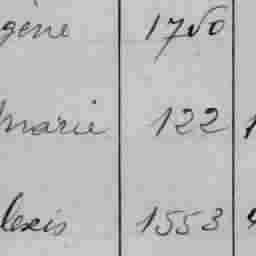 gène 1750
Marie 122
lexis 1553